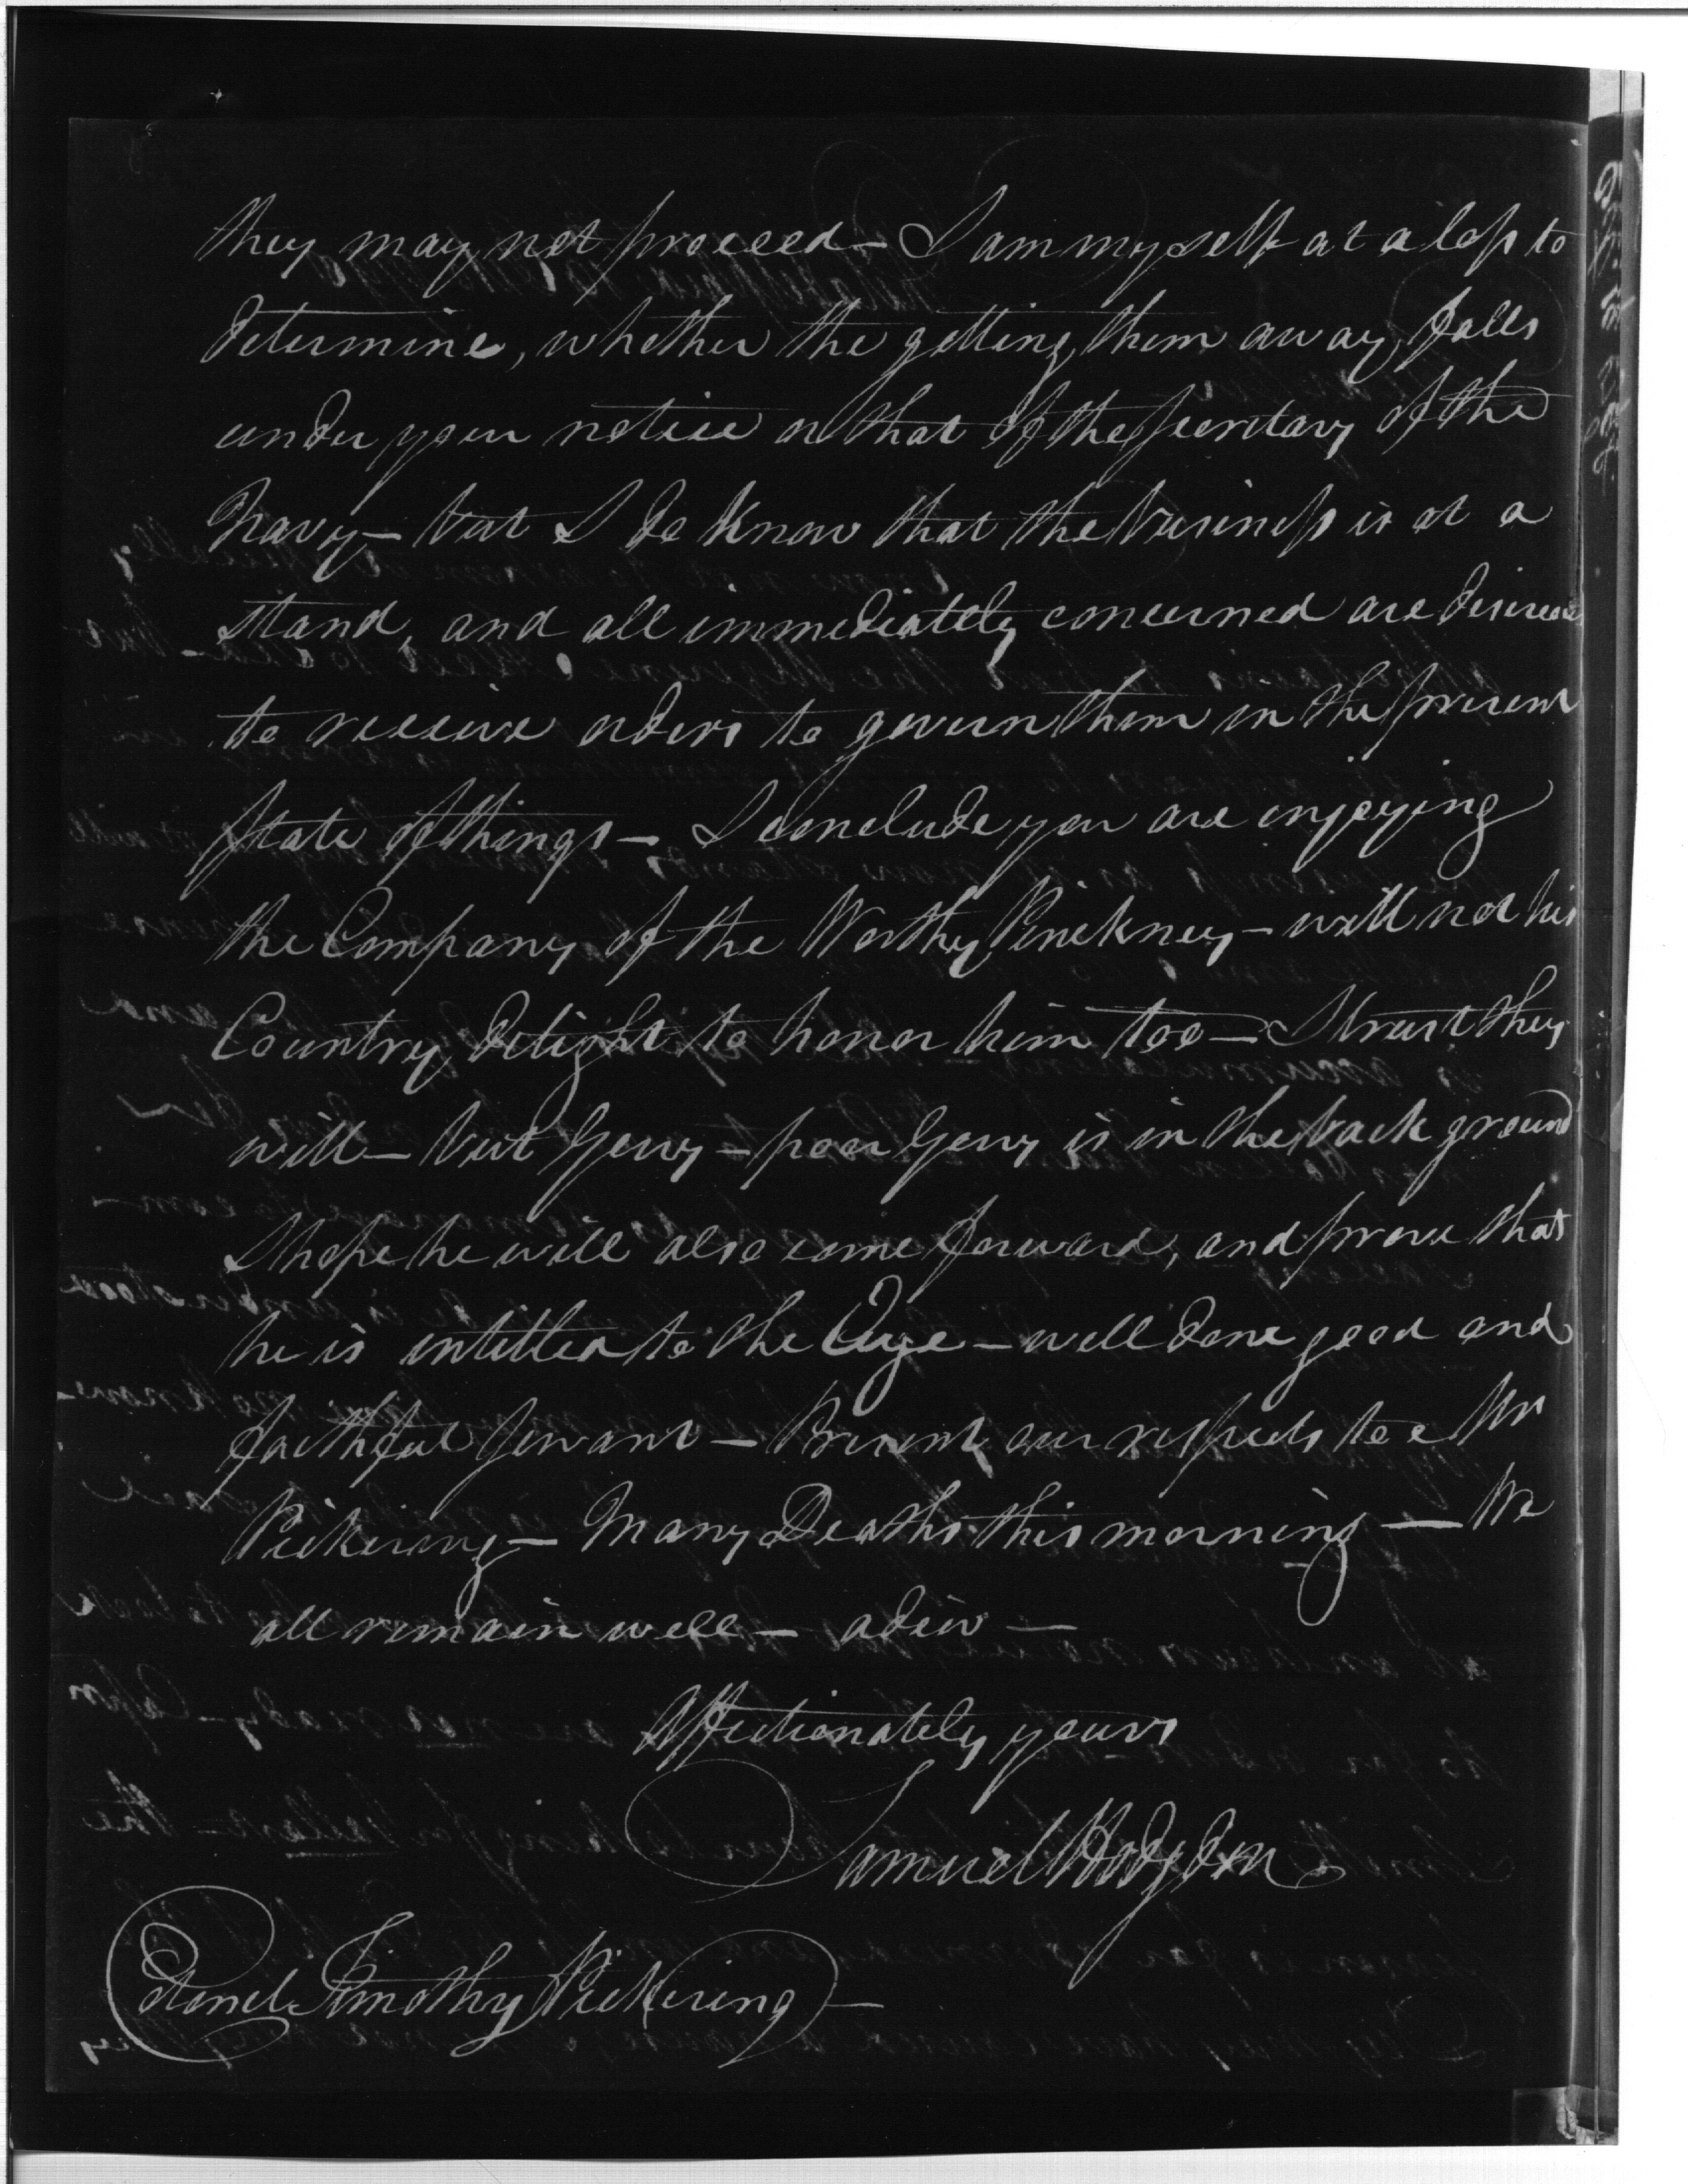 they may not proceed — I am myself at a loss to
determine, whether the getting them away, falls
under your notice or that of the Secretary of the
Navy — but I do know that the business is at a
stand, and all immediately concerned are desirous
to receive orders to govern them in the present
State of things — I conclude you are enjoying
the Company of the Worthy Pinckney — will not his
Country delight to honor him too — I trust they
will — but Gerry — poor Gerry is in the back ground
I hope he will also come forward, and prove that
he is intitled to the Euge — well done good and
faithful Servant — Present our respects to Mrs
Pickering — Many Deaths this morning — We
all remain well — adieu —
Affectionately yours
Samuel Hodgdon
Colonel Timothy Pickering —